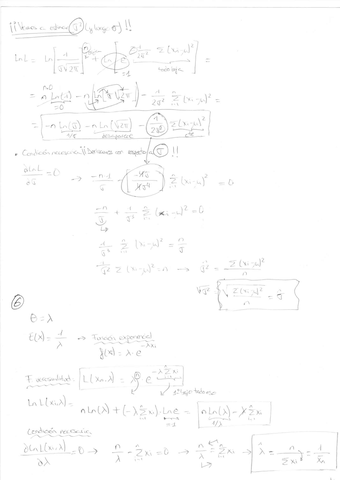 ¡¡Vamos a estimar σ² (y luego σ)!!
lnL = ln[1/(σ√2π)]ⁿ + ln e^(-1/2σ² Σ(xi-μ)²) =
= n ln(1) - n ln[σ√2π] - 1/2σ² Σ(xi-μ)² =
= -n ln(σ) - n ln(√2π) - 1/2σ² Σ(xi-μ)²
• Condición necesaria !! Derivamos con respecto a σ !!
∂lnL/∂σ = 0 → -n·1/σ - [ ] Σ(xi-μ)² = 0
-n/σ + 1/σ³ Σ(xi-μ)² = 0
1/σ³ Σ(xi-μ)² = n/σ
1/σ² Σ(xi-μ)² = n → σ̂² = Σ(xi-μ)²/n
√σ² √(Σ(xi-μ)²/n) = σ̂
6
θ = λ
E(x) = 1/λ → Función exponencial
f(x) = λ·e^(-λxi)
F. verosimilitud: L(xi,λ) = λⁿ · e^(-λΣxi)
ln L(xi,λ) = n ln(λ) + (-λΣxi)·ln e = n ln(λ) - λΣxi
Condición necesaria
∂lnL(xi,λ)/∂λ = 0 → n/λ - Σxi = 0 → n/λ = Σxi → λ̂ = n/Σxi = 1/x̄n